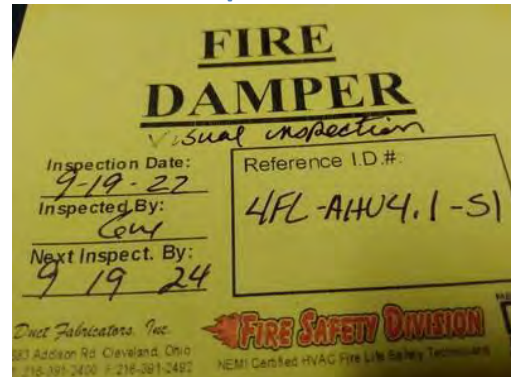 FIRE
DAMPER
Visual inspection
Inspection Date:
9-19-22
Inspected By:
Next Inspect. By:
9 19 24
Reference I.D.#:
4FL-AHU4.1-S1
Duct Fabricators, Inc.
883 Addison Rd. Cleveland, Ohio
216-391-2400 F:216-391-2492
FIRE SAFETY DIVISION
NEMI Certified HVAC Fire Life Safety Technicians